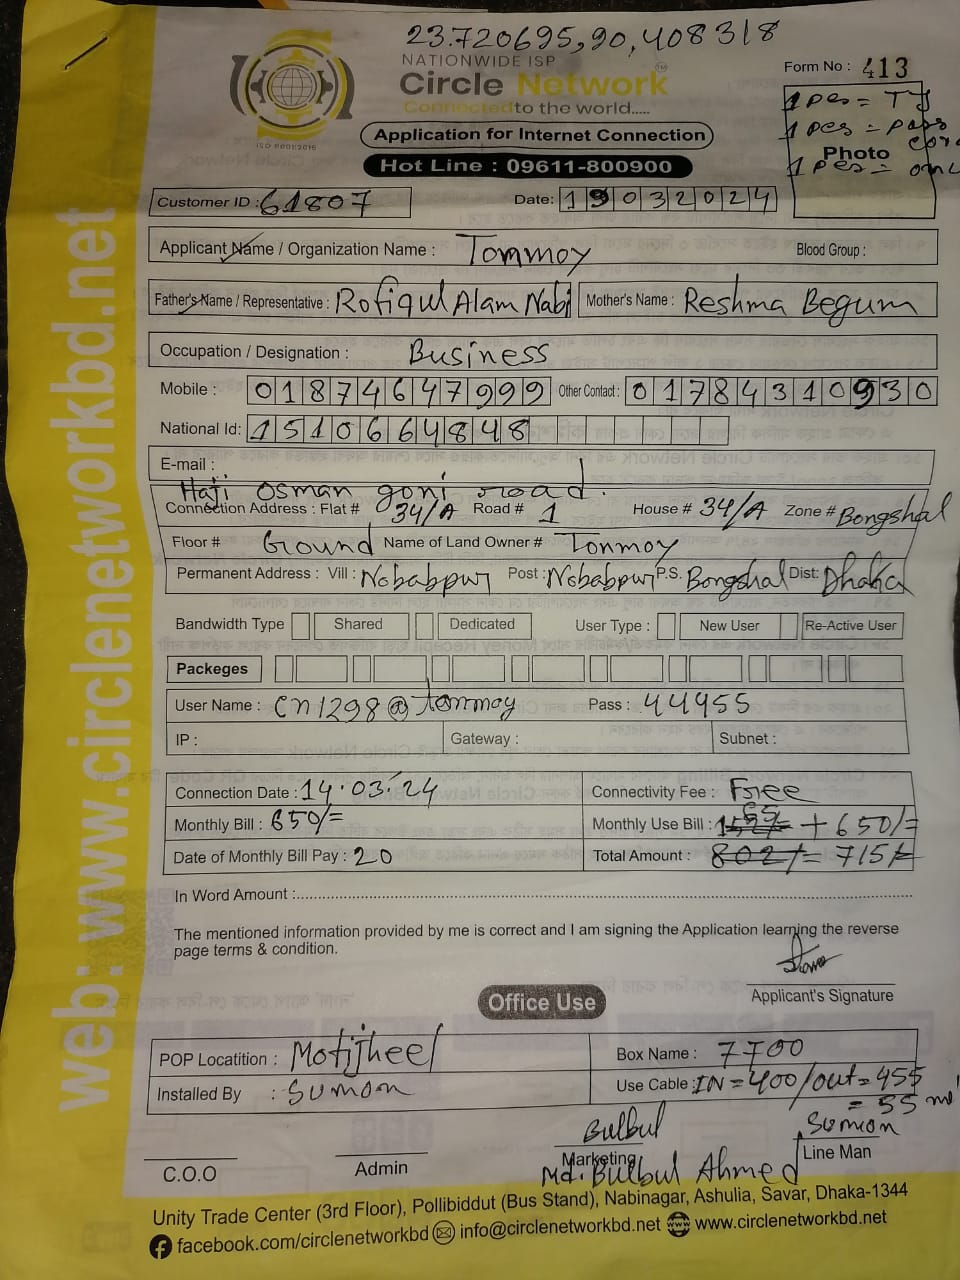 23.720695,90,408318
NATIONWIDE ISP
Circle Network
Connected to the world.....
ISO 9001:2015
Form No : 413
1 pes = TJ
1 pes = pass
Photo
1 pes =
Application for Internet Connection
Hot Line : 09611-800900
Customer ID : 61807
Date: 19032024
Applicant Name / Organization Name : Tommoy
Blood Group :
Father's Name / Representative : Rofiqul Alam Nabi
Mother's Name : Reshma Begum
Occupation / Designation : Business
Mobile : 01874647999
Other Contact : 01784310930
National Id: 1510664848
E-mail :
Haji osman goni road.
Connection Address : Flat # 34/A Road # 1 House # 34/A Zone # Bongshal
Floor # Ground Name of Land Owner # Tonmoy
Permanent Address : Vill : Nobabpur Post : Nobabpur P.S. Bongshal Dist: Dhaka
Bandwidth Type Shared Dedicated User Type : New User Re-Active User
Packeges
User Name : cn1298@tonmoy Pass : 44955
IP : Gateway : Subnet :
Connection Date : 14.03.24
Connectivity Fee : Free
Monthly Bill : 650/=
Monthly Use Bill : 65 + 650/=
Date of Monthly Bill Pay : 20
Total Amount : 802/= 715/=
In Word Amount :
The mentioned information provided by me is correct and I am signing the Application learning the reverse
page terms & condition.
Applicant's Signature
Office Use
POP Locatition : Motijheel
Box Name : 7700
Installed By : Sumon
Use Cable : IN = 400/out = 455
= 55 m
Bulbul
Sumon
C.O.O
Admin
Marketing
Line Man
Md. Bulbul Ahmed
Unity Trade Center (3rd Floor), Pollibiddut (Bus Stand), Nabinagar, Ashulia, Savar, Dhaka-1344
facebook.com/circlenetworkbd info@circlenetworkbd.net www.circlenetworkbd.net
web: www.circlenetworkbd.net